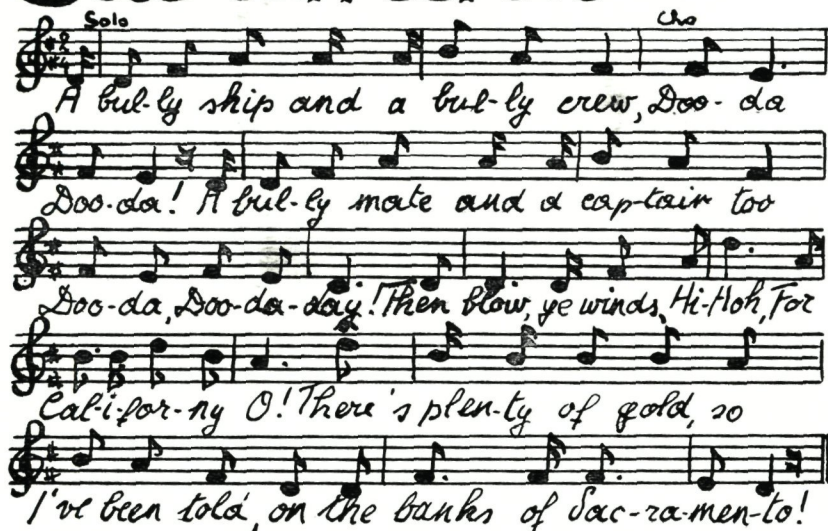 Solo Cho
A bul-ly ship and a bul-ly crew, Doo-da
Doo-da! A bul-ly mate and a cap-tain too
Doo-da, Doo-da-day! Then blow, ye winds, Hi-Hoh, For
Cal-i-for-ny O! There's plen-ty of gold, so
I've been told, on the banks of Sac-ra-men-to!